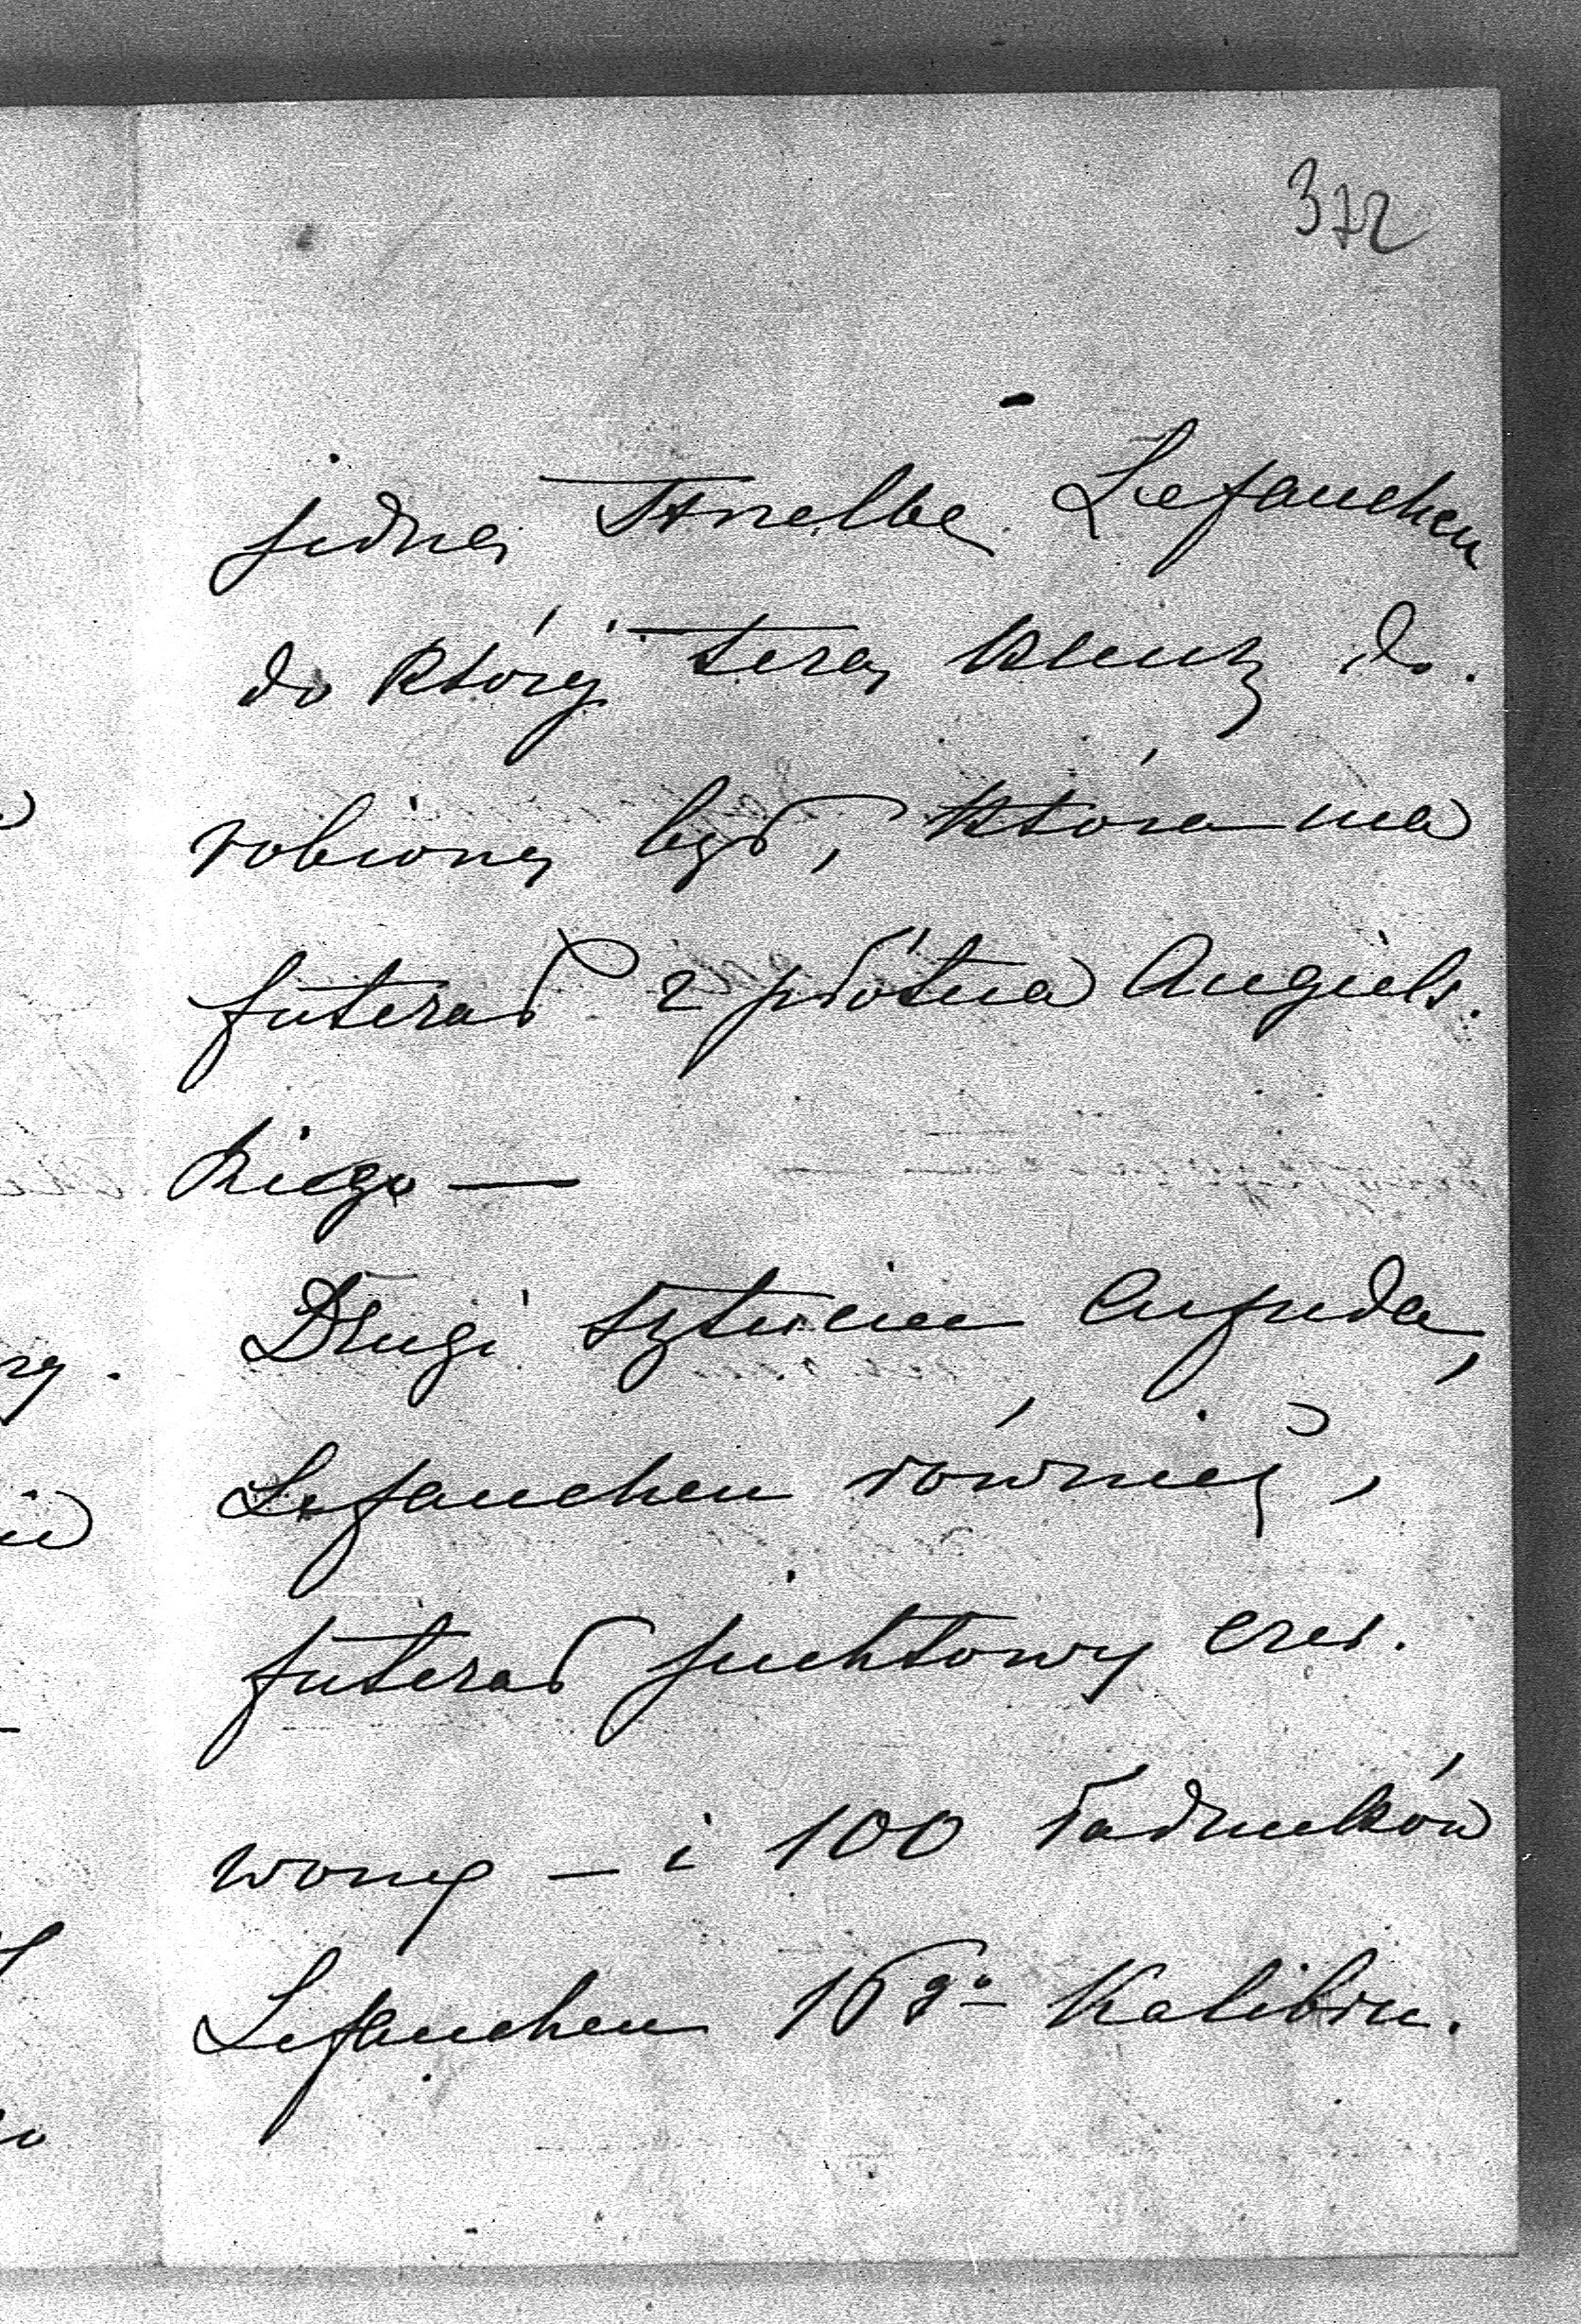 372
jednę Strzelbę Lefaucheu
do któréj teraz klucz do-
robiony był, która ma
futerał z płótna Angiels-
kiego —
Drugi sztuciec
Lefaucheu również,
futerał juchtowy czer-
wony — i 100 ładunków
Lefaucheu 16go Kalibru.